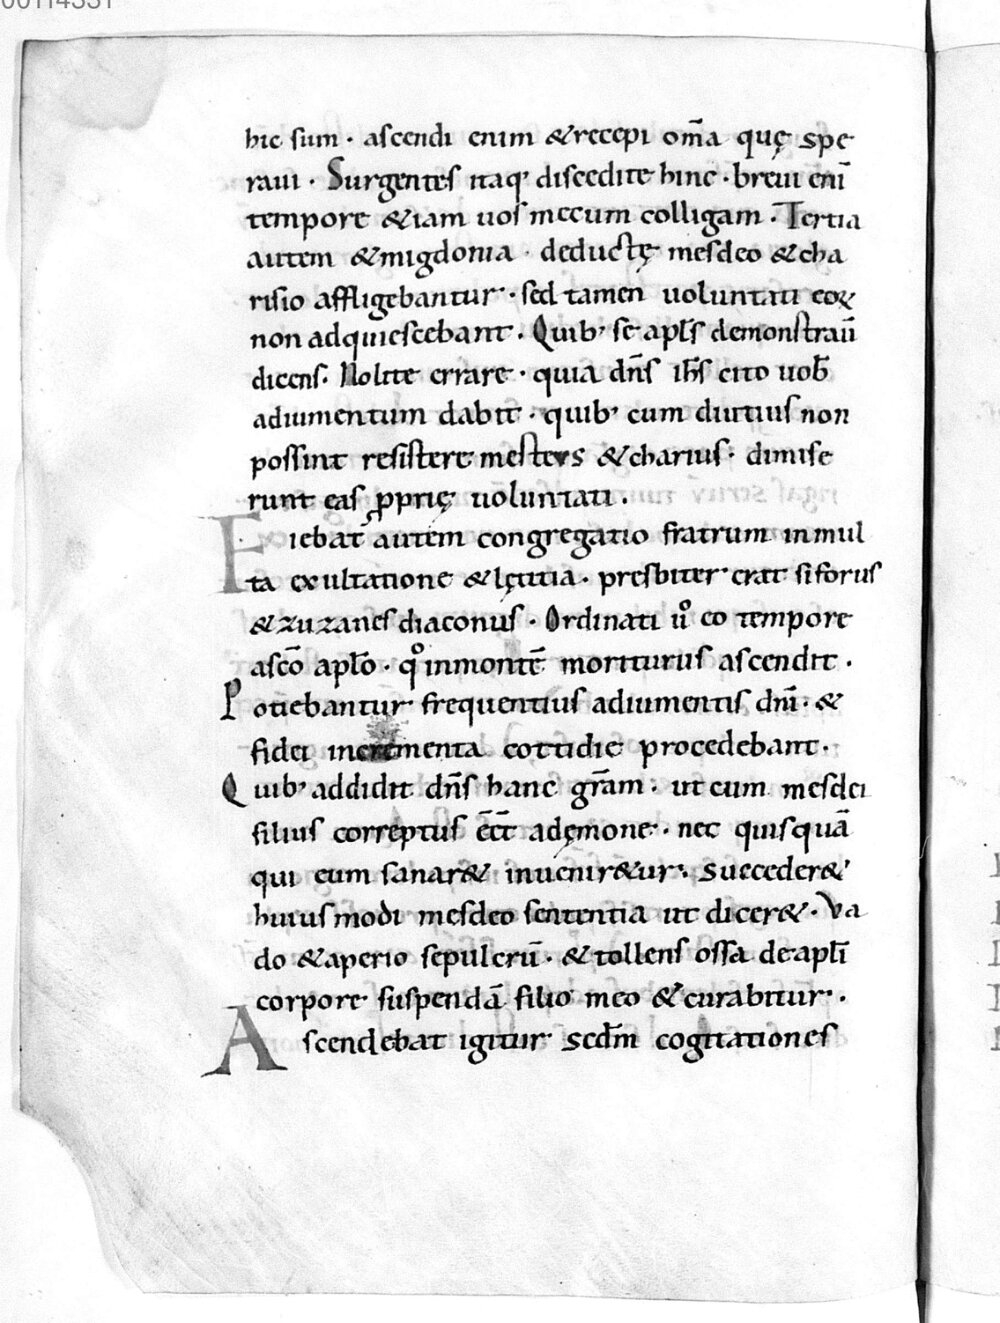 hic sum · ascendi enim & recepi om̅a quę spe
raui · Surgentes itaq' discedite hinc · breui eni̅
tempore & iam uos mecum colligam · Tertia
autem & migdonia · deductę mesdeo & cha
risio affligebantur · sed tamen uoluntati eoꝝ
non adquiescebant · Quib' se apl̅s demonstrau̅
dicens · Nolite errare · quia dn̅s ih̅s cito uob̅
adiumentum dabit · quib' cum diutius non
possint resistere mesteus & charius · dimise
runt eas ꝓprię uoluntati ·
Fiebat autem congregatio fratrum in mul
ta exultatione & lętitia · presbiter erat siforus
& zuzanes diaconus · Ordinati ů eo tempore
a sc̅o apl̅o · qͦ in monte̅ moriturus ascendit ·
Potiebantur frequentius adiumentis dn̅i · &
fidei incrementa cottidie procedebant ·
Quib' addidit dn̅s hanc gr̅am · ut cum mesdei
filius correptus e̅c̅t̅ a dęmone · nec quisqua̅
qui eum sanar& inuenir&ur · succeder&
huiusmodi mesdeo sententia ut dicer& · Va
do & aperio sepulcru̅ · & tollens ossa de apl̅i
corpore suspenda̅ filio meo & curabitur ·
Ascendebat igitur scdm̅ cogitationes